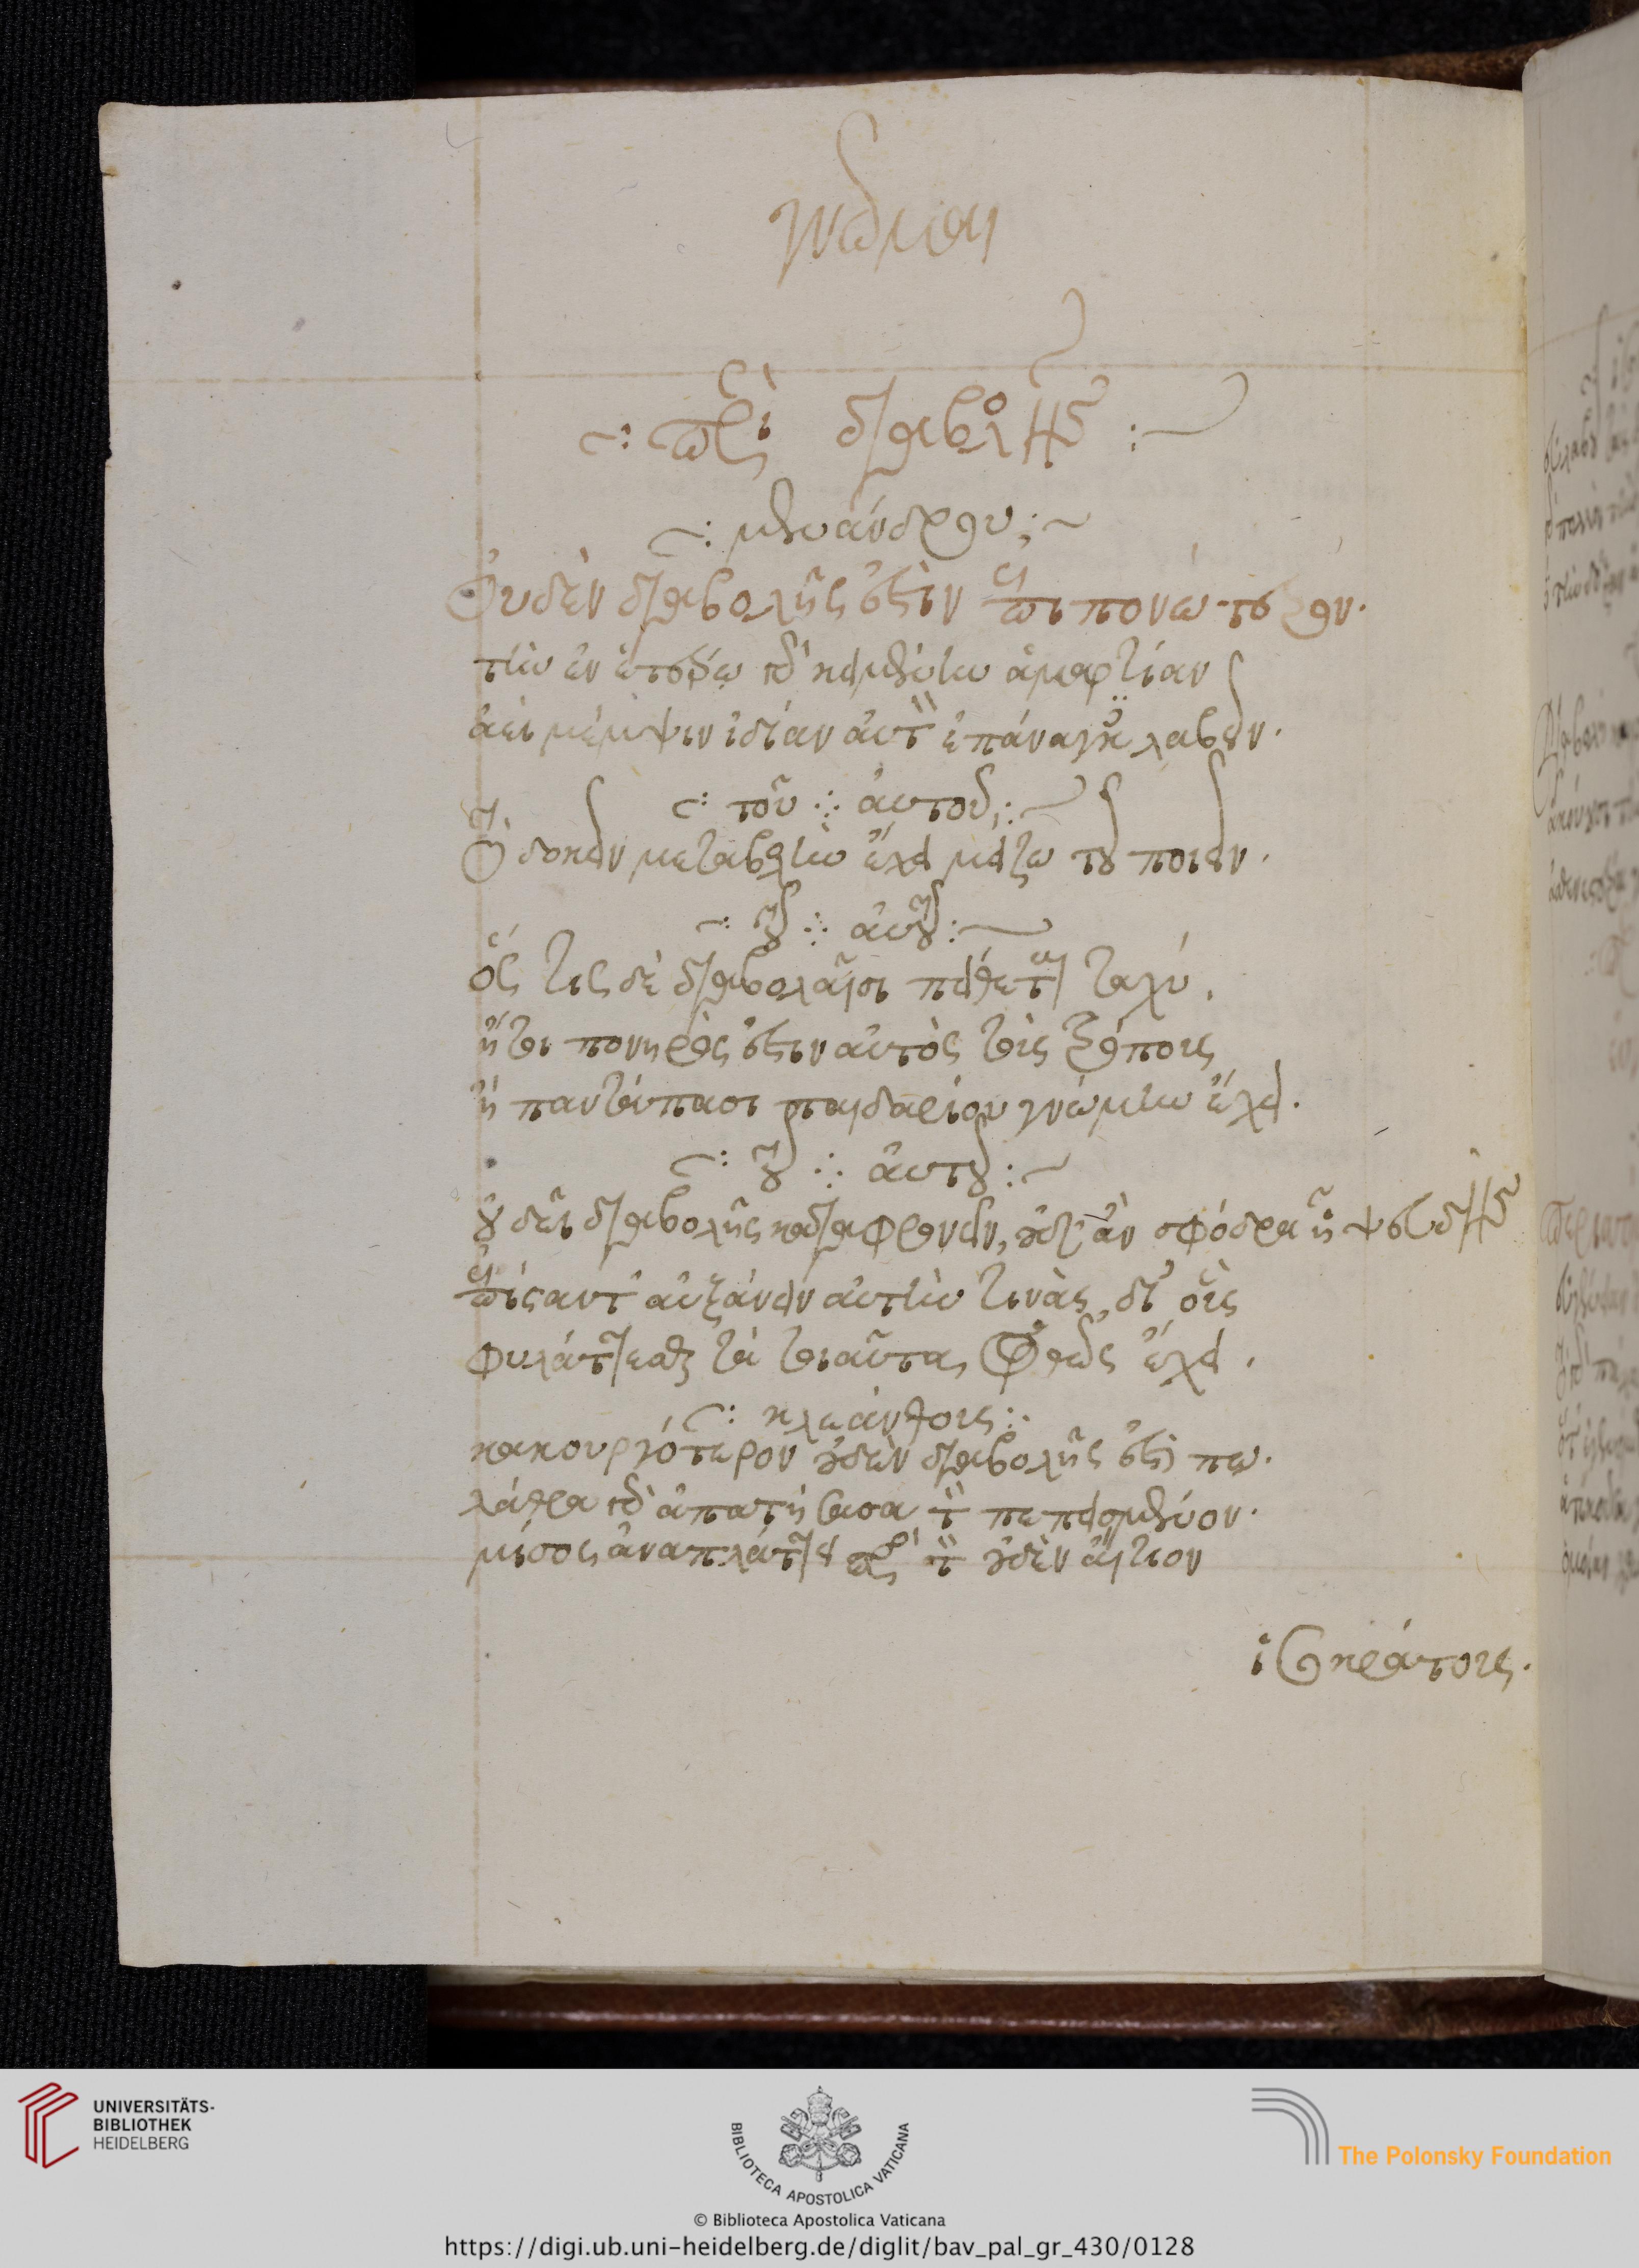 γνῶμαι
περὶ διαβολῆς
μενάνδρου
Οὐδὲν διαβολῆς ἐστὶν ἐπιπονώτερον.
τὴν ἐν ἑτέρῳ γὰρ κειμένην ἁμαρτίαν
ἀεὶ μέμψιν ἰδίαν αὐτὸν ἐπάναγκες λαβεῖν.
τοῦ αὐτοῦ
Τὸ δοκεῖν μεταβολὴν ἔχει μεῖζω τοῦ ποιεῖν.
τοῦ αὐτοῦ
ὅς τις δὲ διαβολαῖσι πείθεται ταχύ,
ἤτοι πονηρός ἐστιν αὐτὸς τοὺς τρόπους
ἢ παντάπασι παιδαρίου γνώμην ἔχει.
τοῦ αὐτοῦ
οὐ δεῖ διαβολῆς καταφρονεῖν, οὐδ' ἂν σφόδρα ᾖ ψευδής
ἐπίσταντ' αὐξάνειν αὐτήν τινὰς, δι' οὓς
φυλάττεσθαι τὰ τοιαῦτα, ὀρθῶς ἔχει.
κλεάνθους
κακουργότερον οὐδὲν διαβολῆς ἐστί πω.
λάθρα γὰρ ἀπατήσασα τὸν πεπεισμένον.
μῖσος ἀναπλάττει πρὸς τὸν οὐδὲν αἴτιον
ἰσοκράτους.
UNIVERSITÄTS-
BIBLIOTHEK
HEIDELBERG
BIBLIOTECA APOSTOLICA VATICANA
The Polonsky Foundation
© Biblioteca Apostolica Vaticana
https://digi.ub.uni-heidelberg.de/diglit/bav_pal_gr_430/0128